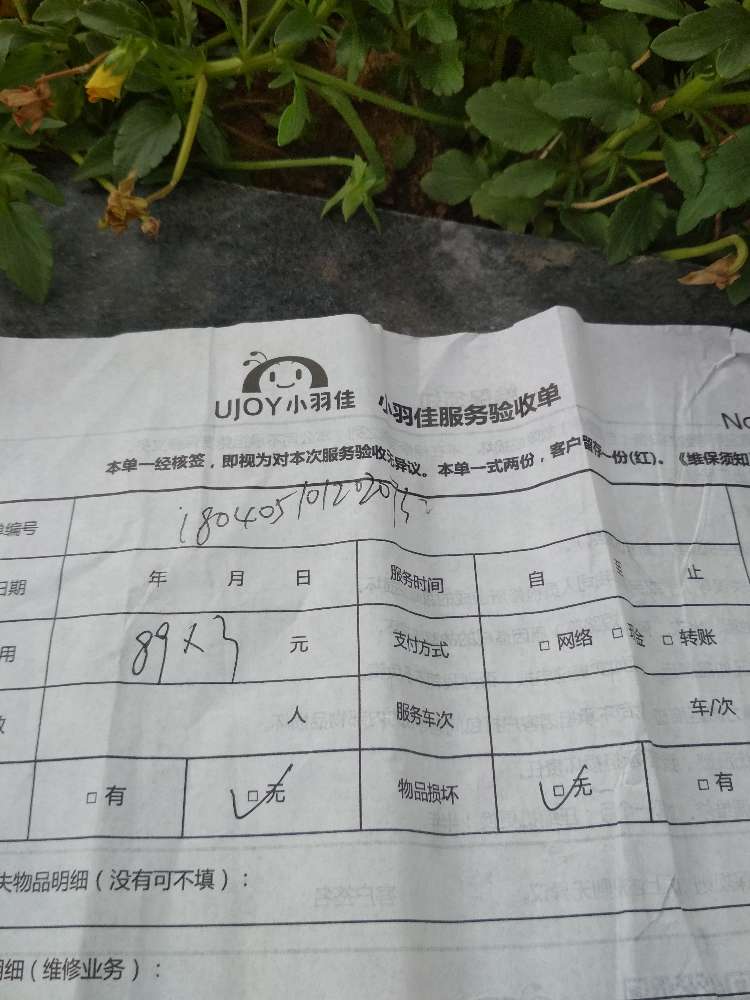 UJOY小羽佳 小羽佳服务验收单
No
本单一经核签，即视为对本次服务验收无异议。本单一式两份，客户留存一份(红)。《维保须知
单编号
日期 年 月 日 服务时间 自 至 止
用 89×3 元 支付方式 □ 网络 □ 现金 □ 转账
数 人 服务车次 车/次
□ 有 □ 无 物品损坏 □ 无 □ 有
失物品明细（没有可不填）：
明细（维修业务）：